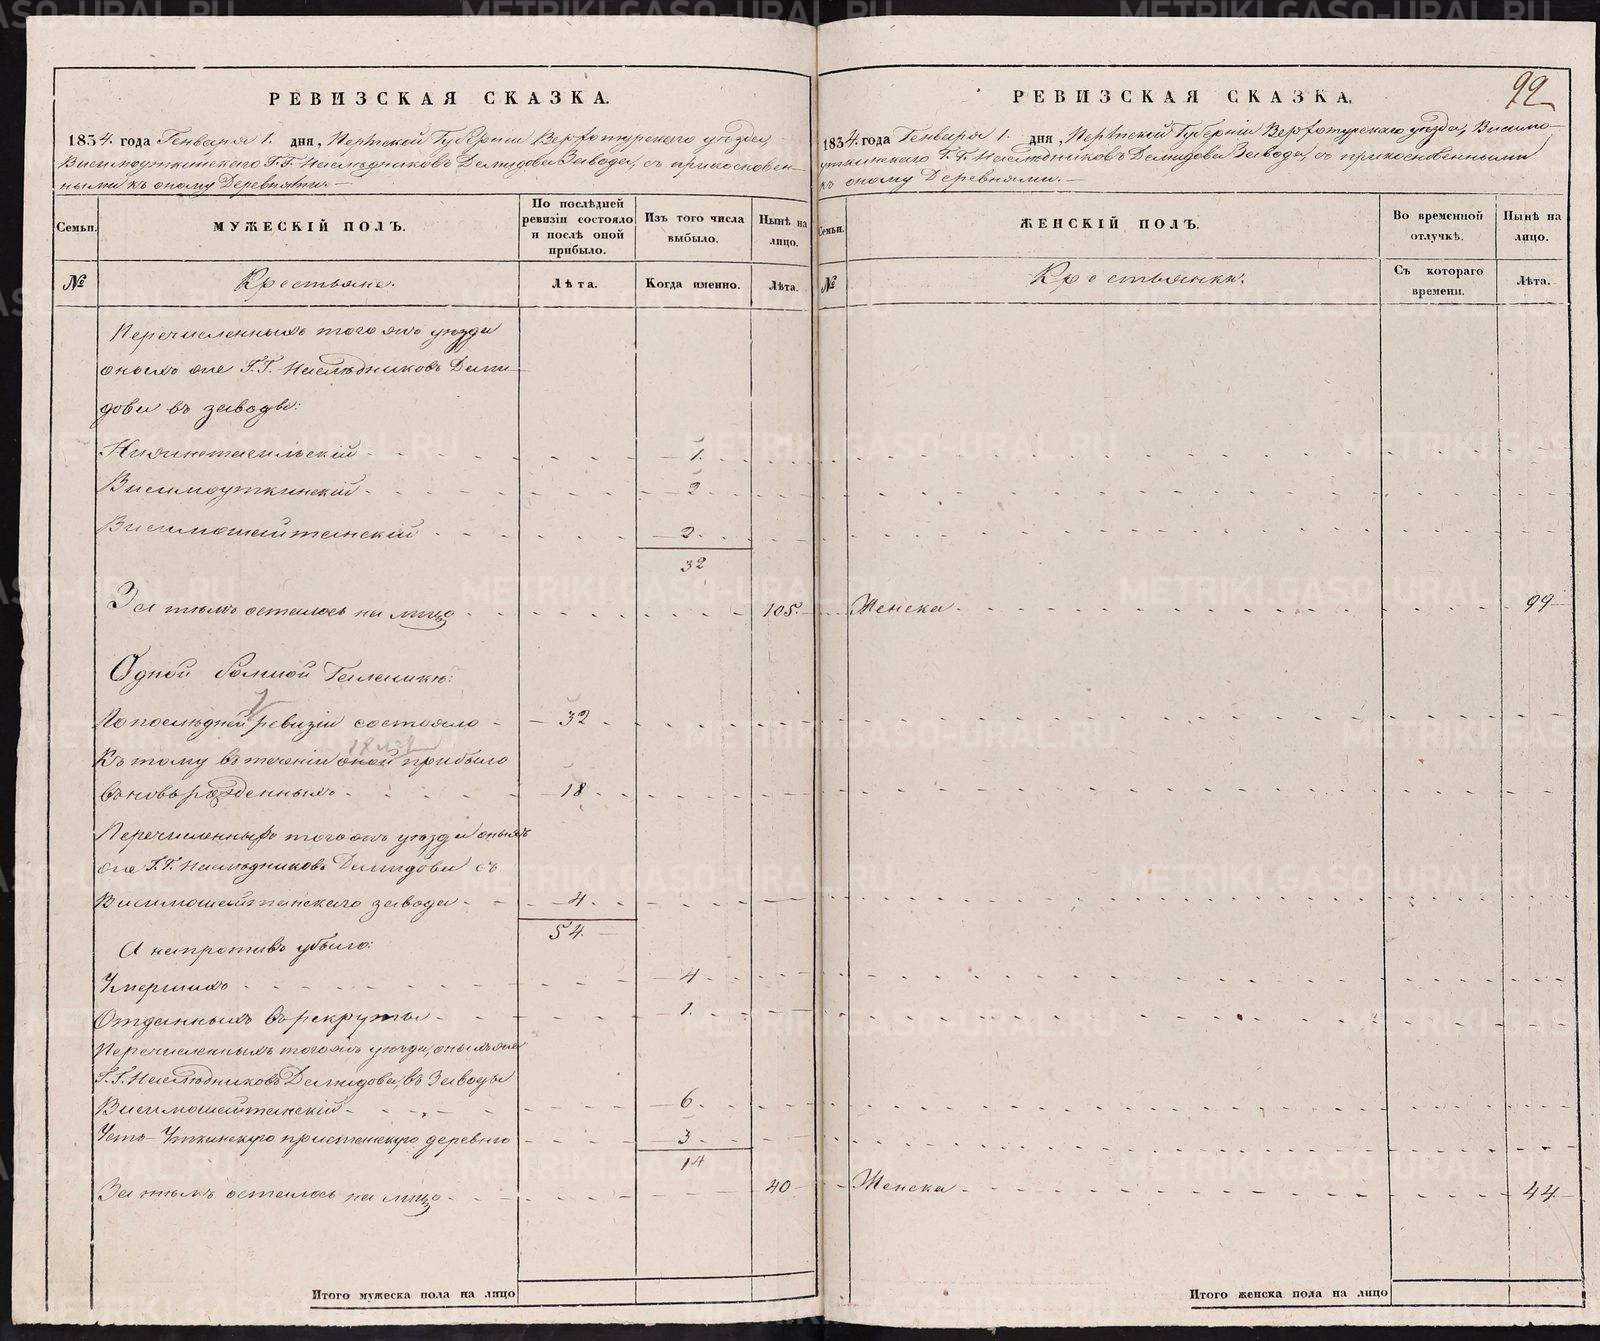 РЕВИЗСКАЯ СКАЗКА.
1834. года Генваря 1. дня, Пермской Губернiи Верхотурскаго уѣзда,
Висимоуткинскаго Г.Г. Наслѣдниковъ Демидова Завода, съ прикосновен-
ными къ оному Деревнями.—
Семьи.
МУЖЕСКIЙ ПОЛЪ.
По послѣдней ревизiи состояло и послѣ оной прибыло.
Изъ того числа выбыло.
Нынѣ на лицо.
№
Крестьяне.
Лѣта.
Когда именно.
Лѣта.
Перечисленныхъ того жъ уѣзда
оныхъ же Г.Г. Наслѣдниковъ Деми-
дова въ заводы:
Нижнетагильскiй 1.
Висимоуткинскiй 2
Висимошайтанскiй 2.
32
За тѣмъ осталось на лицо 105.
Одной большой Галашки:
По послѣдней ревизiи состояло 32
Къ тому въ теченiи оной прибыло
вновь рожденныхъ 18
Перечисленныхъ того жъ уѣзда оныхъ
же Г.Г. Наслѣдниковъ Демидова съ
Висимошайтанскаго завода 4
54.
А напротивъ убыло:
Умершихъ 4
Отданныхъ въ рекруты 1.
Перечисленныхъ того жъ уѣзда, оныхъ же
Г.Г. Наслѣдниковъ Демидова, въ Заводы
Висимошайтанскiй 6.
Усть-Уткинскую пристанскую деревню 3
14
За тѣмъ осталось на лицо 40
Итого мужеска пола на лицо
РЕВИЗСКАЯ СКАЗКА.
92
1834. года Генваря 1. дня, Пермской Губернiи Верхотурскаго уѣзда, Висимо-
уткинскаго Г.Г. Наслѣдниковъ Демидова Завода, съ прикосновенными
къ оному Деревнями.—
Семьи.
ЖЕНСКIЙ ПОЛЪ.
Во временной отлучкѣ.
Нынѣ на лицо.
№
Крестьянки.
Съ котораго времени.
Лѣта.
Женска 99
Женска 44
Итого женска пола на лицо
METRIKI.GASO-URAL.RU